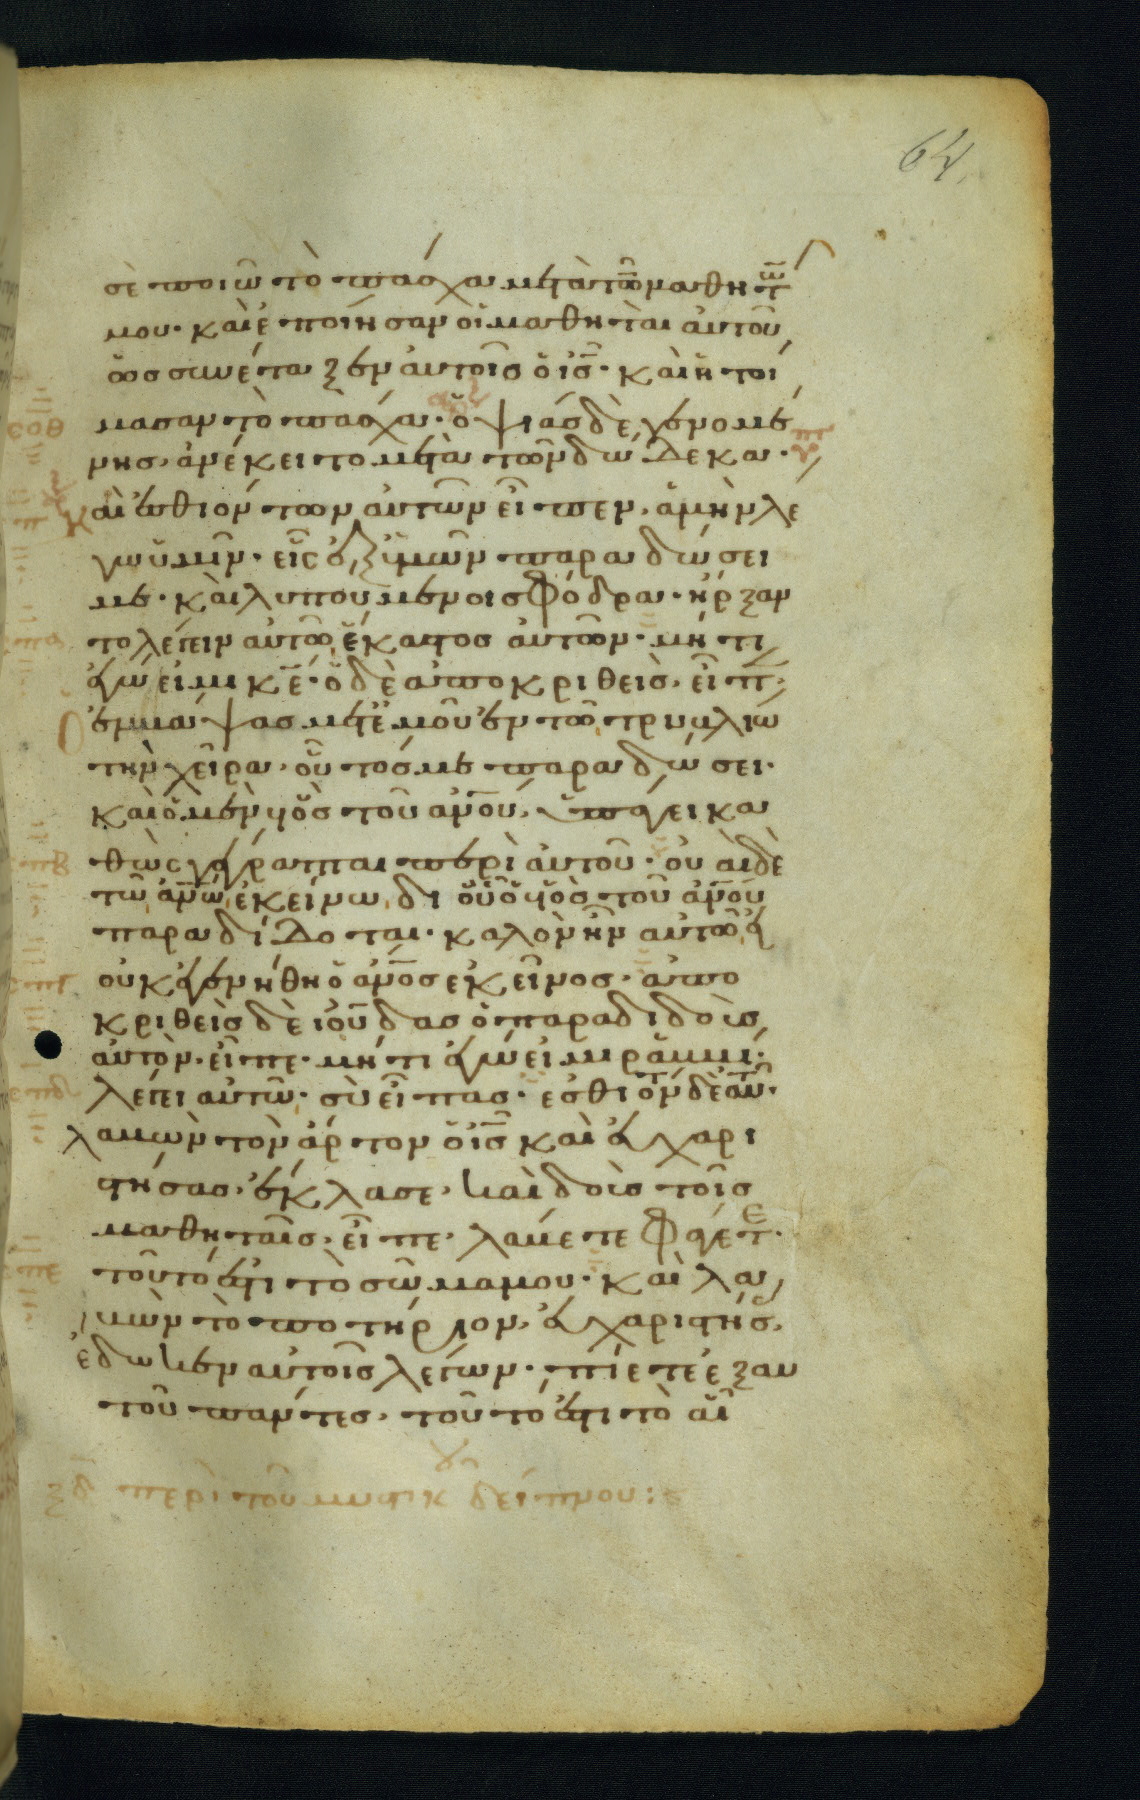 64
σὲ ποιῶ τὸ πάσχα μετὰ τῶν μαθητῶ
μου· καὶ ἐποίησαν οἱ μαθηταὶ αὐτοῦ
ὡς συνέταξεν αὐτοῖς ὁ ις̅· καὶ ἡτοί
μασαν τὸ πάσχα· ὀψίας δὲ γενομέ
νης, ἀνέκειτο μετὰ τῶν δώδεκα·
Καὶ ἐσθιόντων αὐτῶν εἶπεν, ἀμὴν λέ
γω ὑμῖν· εἷς ἐξ ὑμῶν παραδώσει
με· καὶ λυπούμενοι σφόδρα· ἤρξαν
το λέγειν αὐτῶ, ἕκαστος αὐτῶν· μήτι
ἐγώ εἰμι κε̅· ὁ δὲ ἀποκριθεὶς, εἶπ·
Ὁ ἐμβάψας μετ' ἐμοῦ ἐν τῶ τρυβλίω
τὴν χεῖρα, οὗτός με παραδώσει·
καὶ ὁ μὲν υἱὸς τοῦ ανου, ὑπάγει κα
θὼς γέγραπται περὶ αὐτοῦ· οὐαὶ δὲ
τῶ ανω ἐκείνω, δι' οὗ ὁ υἱὸς τοῦ ανου
παραδίδοται· καλὸν ἦν αὐτῶ εἰ
οὐκ ἐγεννήθη ὁ ανος ἐκεῖνος· ἀπο
κριθεὶς δὲ ἰούδας ὁ παραδιδοὺς
αὐτὸν, εἶπε· μήτι ἐγώ εἰμι ῥαββί·
λέγει αὐτῶ· σὺ εἶπας· ἐσθιόντ δὲ αὐτ·
λαβὼν τὸν ἄρτον ὁ ις̅ καὶ εὐχαρι
στήσας, ἔκλασε, καὶ δοὺς τοῖς
μαθηταῖς, εἶπε, λάβετε φάγετε·
τοῦτό ἐστι τὸ σῶμα μου· καὶ λα
βὼν τὸ ποτήριον, εὐχαριστήσ,
ἔδωκεν αὐτοῖς λέγων· πίετε ἐξ αυ
τοῦ πάντες, τοῦτό ἐστι τὸ αἷ
ξδ περὶ τοῦ μυστικ δείπνου: